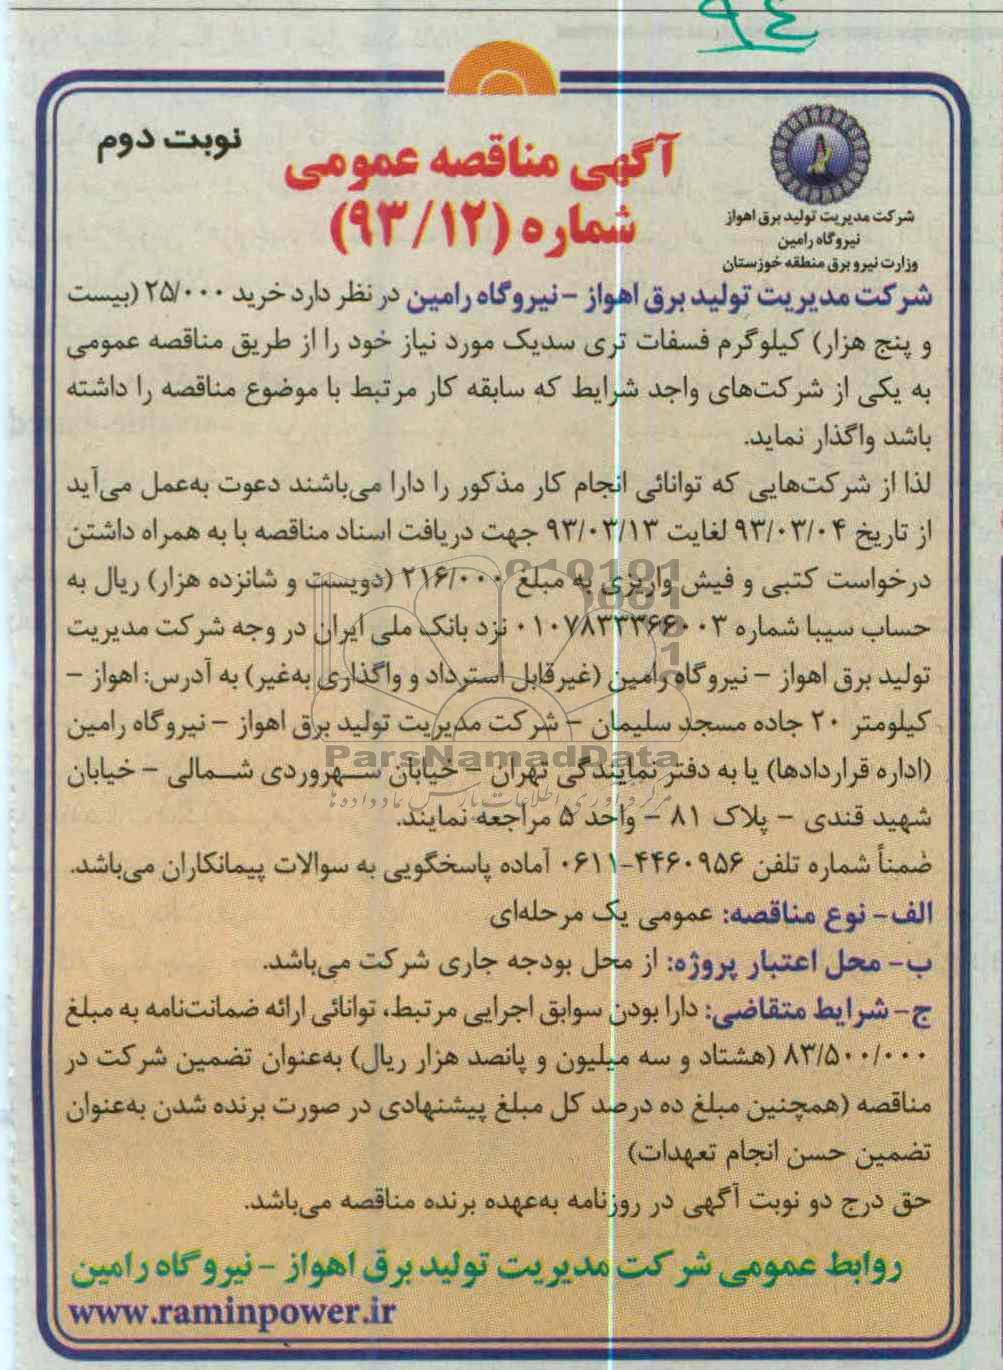 ۹۴
نوبت دوم
آگهی مناقصه عمومی
شماره (۹۳/۱۲)
شرکت مدیریت تولید برق اهواز
نیروگاه رامین
وزارت نیرو برق منطقه خوزستان
شرکت مدیریت تولید برق اهواز - نیروگاه رامین در نظر دارد خرید ۲۵/۰۰۰ (بیست
و پنج هزار) کیلوگرم فسفات تری سدیک مورد نیاز خود را از طریق مناقصه عمومی
به یکی از شرکت‌های واجد شرایط که سابقه کار مرتبط با موضوع مناقصه را داشته
باشد واگذار نماید.
لذا از شرکت‌هایی که توانائی انجام کار مذکور را دارا می‌باشند دعوت به‌عمل می‌آید
از تاریخ ۹۳/۰۳/۰۴ لغایت ۹۳/۰۳/۱۳ جهت دریافت اسناد مناقصه با به همراه داشتن
درخواست کتبی و فیش واریزی به مبلغ ۲۱۶/۰۰۰ (دویست و شانزده هزار) ریال به
حساب سیبا شماره ۰۱۰۷۸۳۳۳۶۶۰۰۳ نزد بانک ملی ایران در وجه شرکت مدیریت
تولید برق اهواز - نیروگاه رامین (غیرقابل استرداد و واگذاری به‌غیر) به آدرس: اهواز -
کیلومتر ۲۰ جاده مسجد سلیمان - شرکت مدیریت تولید برق اهواز - نیروگاه رامین
ParsNamadData
(اداره قراردادها) یا به دفتر نمایندگی تهران - خیابان سهروردی شمالی - خیابان
مرکز فرآوری اطلاعات پارس نماد داده ها
شهید قندی - پلاک ۸۱ - واحد ۵ مراجعه نمایند.
ضمناً شماره تلفن ۴۴۶۰۹۵۶-۰۶۱۱ آماده پاسخگویی به سوالات پیمانکاران می‌باشد.
الف- نوع مناقصه: عمومی یک مرحله‌ای
ب- محل اعتبار پروژه: از محل بودجه جاری شرکت می‌باشد.
ج- شرایط متقاضی: دارا بودن سوابق اجرایی مرتبط، توانائی ارائه ضمانت‌نامه به مبلغ
۸۳/۵۰۰/۰۰۰ (هشتاد و سه میلیون و پانصد هزار ریال) به‌عنوان تضمین شرکت در
مناقصه (همچنین مبلغ ده درصد کل مبلغ پیشنهادی در صورت برنده شدن به‌عنوان
تضمین حسن انجام تعهدات)
حق درج دو نوبت آگهی در روزنامه به‌عهده برنده مناقصه می‌باشد.
روابط عمومی شرکت مدیریت تولید برق اهواز - نیروگاه رامین
www.raminpower.ir